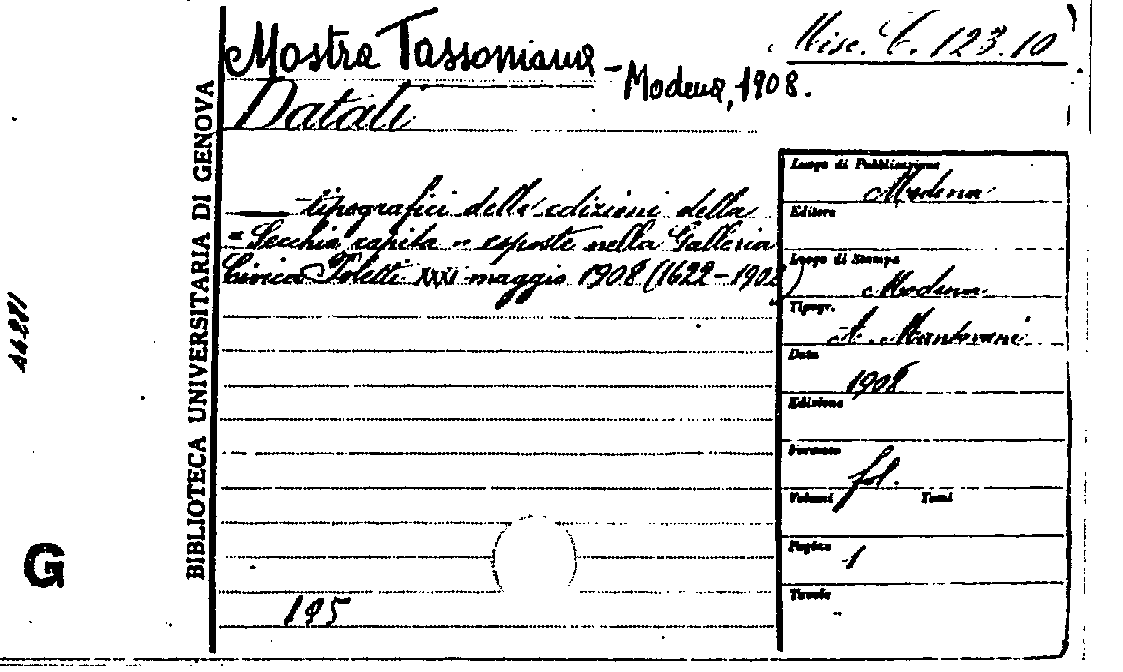 Misc. C. 123.10
Mostra Tassoniana - Modena, 1908.
Datali
— tipografici delle edizioni della
"Secchia rapita" esposte nella Galleria
Civica Poletti XXXI maggio 1908 (1622-1908)
195
BIBLIOTECA UNIVERSITARIA DI GENOVA
G
Luogo di Pubblicazione
Modena
Editore
Luogo di Stampa
Modena
Tipogr.
A. Mantovani
Data
1908
Edizione
Formato
fol.
Volumi Tomi
Pagine
1
Tavole